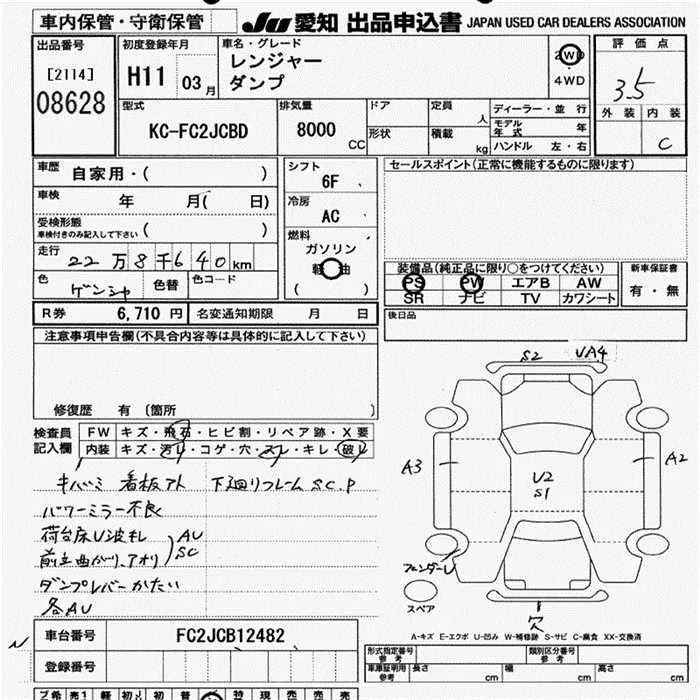 車内保管・守衛保管
JU 愛知 出品申込書 JAPAN USED CAR DEALERS ASSOCIATION
出品番号
[2114]
08628
初度登録年月
H11 03月
車名・グレード
レンジャー
ダンプ
2WD
4WD
評価点
3.5
外装 内装
C
型式
KC-FC2JCBD
排気量
8000
CC
ドア
形状
定員
人
積載
kg
ディーラー・並行
モデル年式 年
ハンドル 左・右
車歴
自家用・( )
車検
年 月( 日)
受検形態
車検付きのみ記入して下さい ( )
走行
22万8千640km
色
ゲンシャ
色替
色コード
シフト
6F
冷房
AC
燃料
ガソリン
軽油
( )
セールスポイント(正常に機能するものに限ります)
装備品(純正品に限り○をつけてください)
PS PW エアB AW
SR ナビ TV カワシート
新車保証書
有・無
R券 6,710円 名変通知期限 月 日
後日品
注意事項申告欄(不具合内容等は具体的に記入して下さい)
修復歴 有 〔箇所 〕
検査員
記入欄
FW キズ・飛石・ヒビ割・リペア跡・X要
内装 キズ・汚レ・コゲ・穴・スレ・キレ・破レ
キバミ 看板アト 下廻りフレームSC.P
パワーミラー不良
荷台床U波札
前立曲がり、アオリ
AU
SC
ダンプレバーかたい
各AU
S2 UA4
A3
A2
U2
S1
フェンダーU
スペア
穴
A-キズ E-エクボ U-凹み W-補修跡 S-サビ C-腐食 XX-交換済
車台番号 FC2JCB12482
登録番号
形式指定番号
参考
類別区分番号
参考
車庫証明用
参考
長さ cm 幅 cm 高さ cm